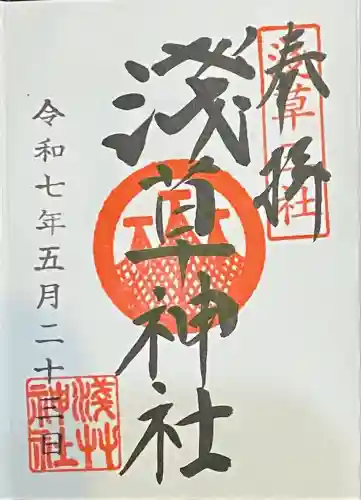 奉拝
浅草神社
浅草神社
令和七年五月二十三日
浅草神社